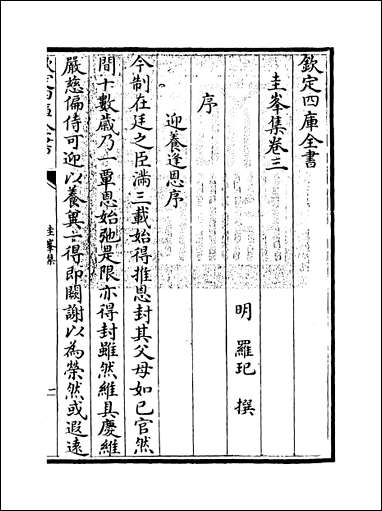 欽定四庫全書
圭峯集卷三
明 羅玘 撰
序
迎養逢恩序
今制在廷之臣滿三載始得推恩封其父母如已官然
間十數歲乃一覃恩始弛是限亦得封雖然維具慶維
嚴慈偏侍可迎以養兾一得即闕謝以為榮然或遐遠
圭峯集